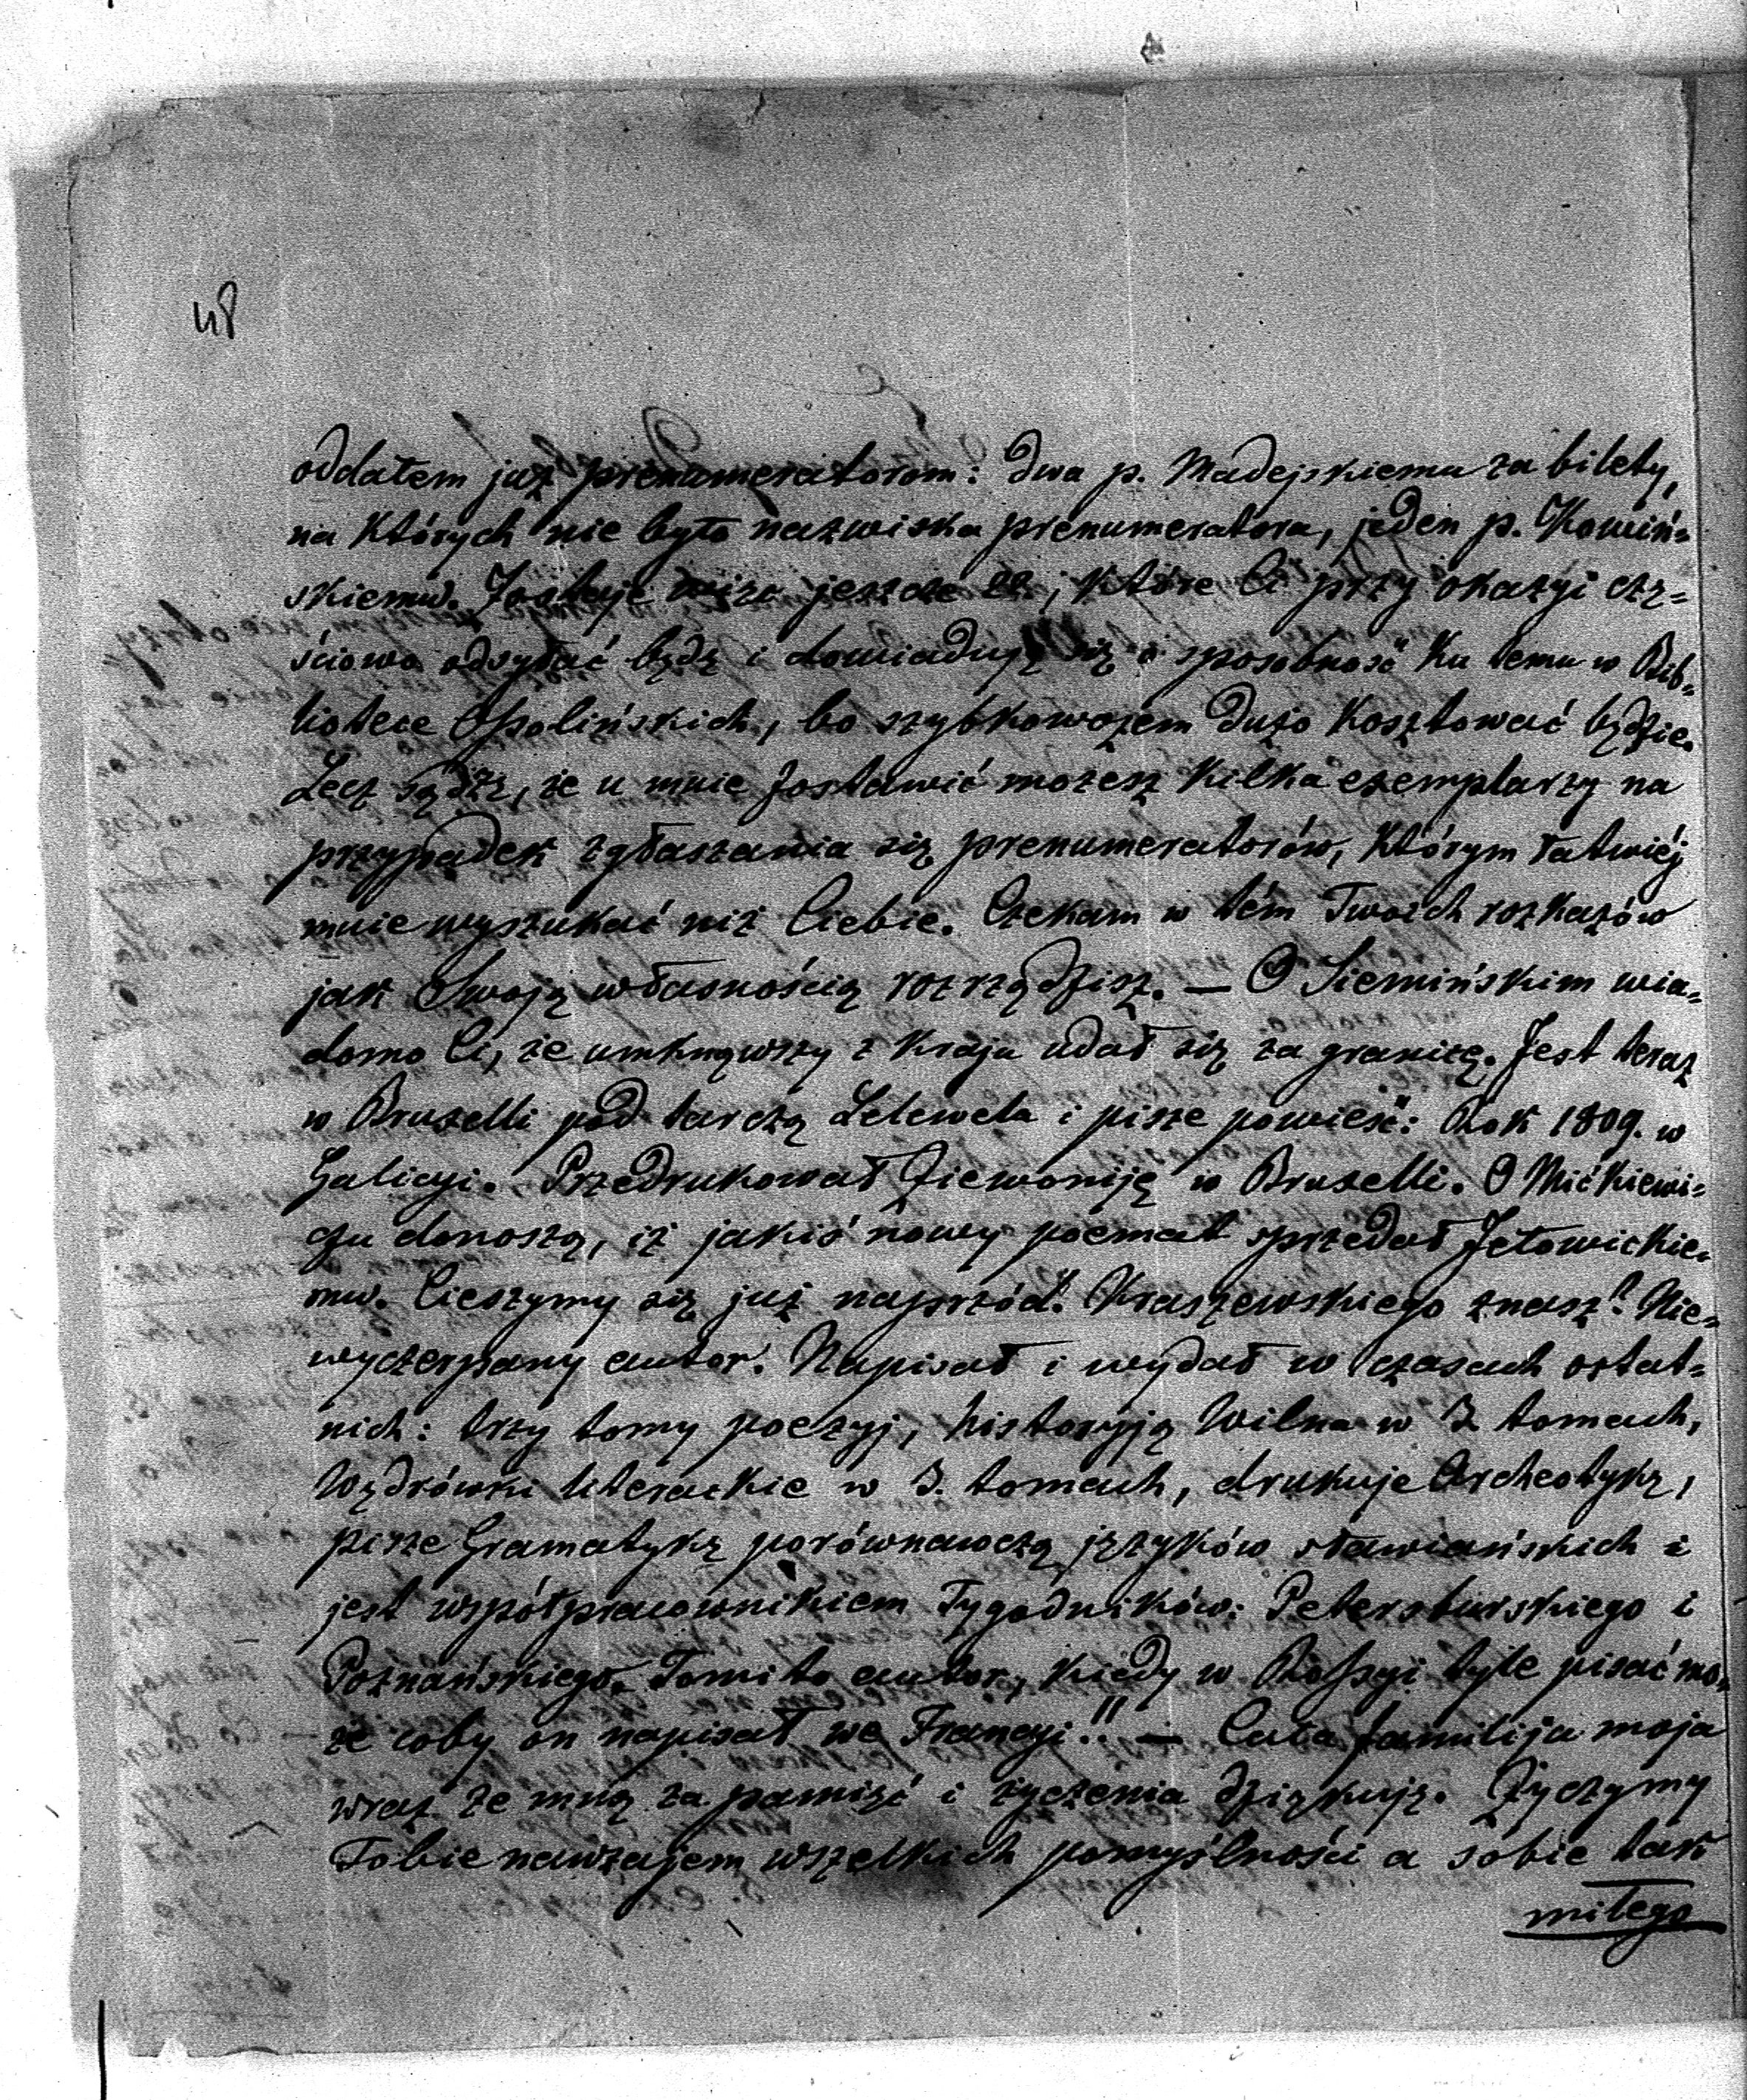 48
oddałem już prenumeratorom: dwa p. Madejskiemu za bilety,
na których nie było nazwiska prenumeratora, jeden p. Komiń=
skiemu. Zostaje więc jeszcze 22, które Ci przy okazyi czę=
ściowo odsyłać będę i dowiaduję się o sposobność ku temu w Bib=
liotece Ossolińskich, bo szybkowozem dużo kosztować będzie.
Lecz sądzę, że u mnie zostawić możesz kilka exemplarzy na
przypadek zgłaszania się prenumeratorów, którym łatwiéj
mnie wyszukać niż Ciebie. Czekam w tém Twoich rozkazów
jak Swoją własnością rozrządzisz. — O Siemińskim wia=
domo Ci, że umknąwszy z kraju udał się za granicę. Jest teraz
w Bruxelli pod tarczą Lelewela i pisze powieść: Rok 1809. w
Galicyi. Przedrukował Ziewoniję w Bruxelli. O Mickiewi=
czu donoszą, iż jakiś nowy poemat sprzedał Jełowickie=
mu. Cieszymy się już naprzód. Kraszewskiego znasz? Nie=
wyczerpany autor. Napisał i wydał w czasach ostat=
nich: trzy tomy poezyj, historyją Wilna w 2 tomach,
Wędrówki literackie w 3. tomach, drukuje Archeotykę,
pisze Gramatykę porównawczą języków sławiańskich i
jest współpracownikiem Tygodników: Petersburskiego i
Poznańskiego. Tomito autor, kiedy w Rossyi tyle pisać mo=
że coby on napisał we Francyi!! — Cała familija moja
wraz ze mną za pamięć i życzenia dziękuję. Życzymy
Tobie nawzajem wszelkich pomyślności a sobie tak
miłego